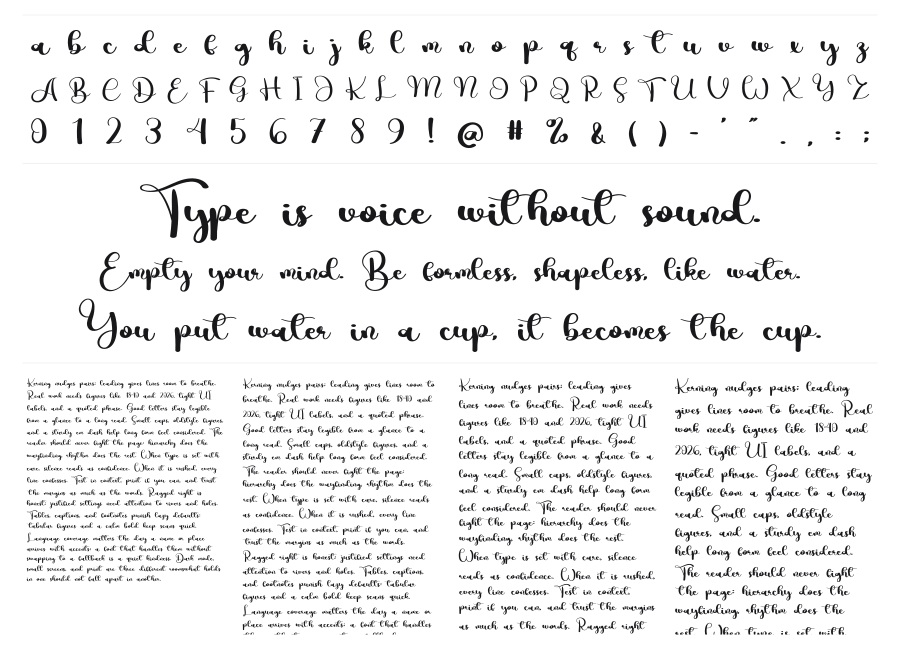 a b c d e f g h i j k l m n o p q r s t u v w x y z
A B C D E F G H I J K L M N O P Q R S T U V W X Y Z
0 1 2 3 4 5 6 7 8 9 ! @ # % & ( ) - ' " . , : ;
Type is voice without sound.
Empty your mind. Be formless, shapeless, like water.
You put water in a cup, it becomes the cup.
Kerning nudges pairs; leading gives lines room to breathe.
Real work needs figures like 18-40 and 2026, tight UI
labels, and a quoted phrase. Good letters stay legible
from a glance to a long read. Small caps, oldstyle figures,
and a sturdy em dash help long form feel considered. The
reader should never fight the page; hierarchy does the
wayfinding, rhythm does the rest. When type is set with
care, silence reads as confidence. When it is rushed, every
line confesses. Test in context, print if you can, and trust
the margins as much as the words. Ragged right is
honest; justified settings need attention to rivers and holes.
Tables, captions, and footnotes punish lazy defaults;
tabular figures and a calm bold keep scans quick.
Language coverage matters the day a name or place
arrives with accents; a font that handles them without
swapping to a fallback is a quiet kindness. Dark mode,
small screens, and print are three different rooms;
in one should not fall apart in another.
Kerning nudges pairs; leading gives lines room to
breathe. Real work needs figures like 18-40 and
2026, tight UI labels, and a quoted phrase.
Good letters stay legible from a glance to a
long read. Small caps, oldstyle figures, and a
sturdy em dash help long form feel considered.
The reader should never fight the page;
hierarchy does the wayfinding, rhythm does the
rest. When type is set with care, silence reads
as confidence. When it is rushed, every line
confesses. Test in context, print if you can, and
trust the margins as much as the words.
Ragged right is honest; justified settings need
attention to rivers and holes. Tables, captions,
and footnotes punish lazy defaults; tabular
figures and a calm bold keep scans quick.
Language coverage matters the day a name or
place arrives with accents; a font that handles
Kerning nudges pairs; leading gives
lines room to breathe. Real work needs
figures like 18-40 and 2026, tight UI
labels, and a quoted phrase. Good
letters stay legible from a glance to a
long read. Small caps, oldstyle figures,
and a sturdy em dash help long form
feel considered. The reader should never
fight the page; hierarchy does the
wayfinding, rhythm does the rest.
When type is set with care, silence
reads as confidence. When it is rushed,
every line confesses. Test in context,
print if you can, and trust the margins
as much as the words. Ragged right
Kerning nudges pairs; leading
gives lines room to breathe. Real
work needs figures like 18-40 and
2026, tight UI labels, and a
quoted phrase. Good letters stay
legible from a glance to a long
read. Small caps, oldstyle
figures, and a sturdy em dash
help long form feel considered.
The reader should never fight
the page; hierarchy does the
wayfinding, rhythm does the
rest. When type is set with